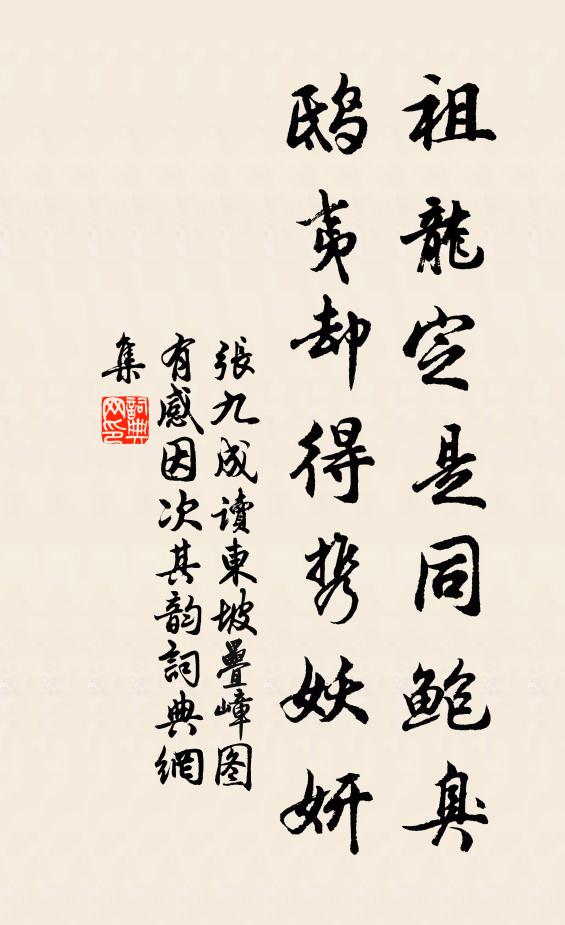 祖龍定是同鲍臭
鴟夷却得携妖妍
張九成讀東坡疊嶂图
有感因次其韵詞典網
集
詞典
网印